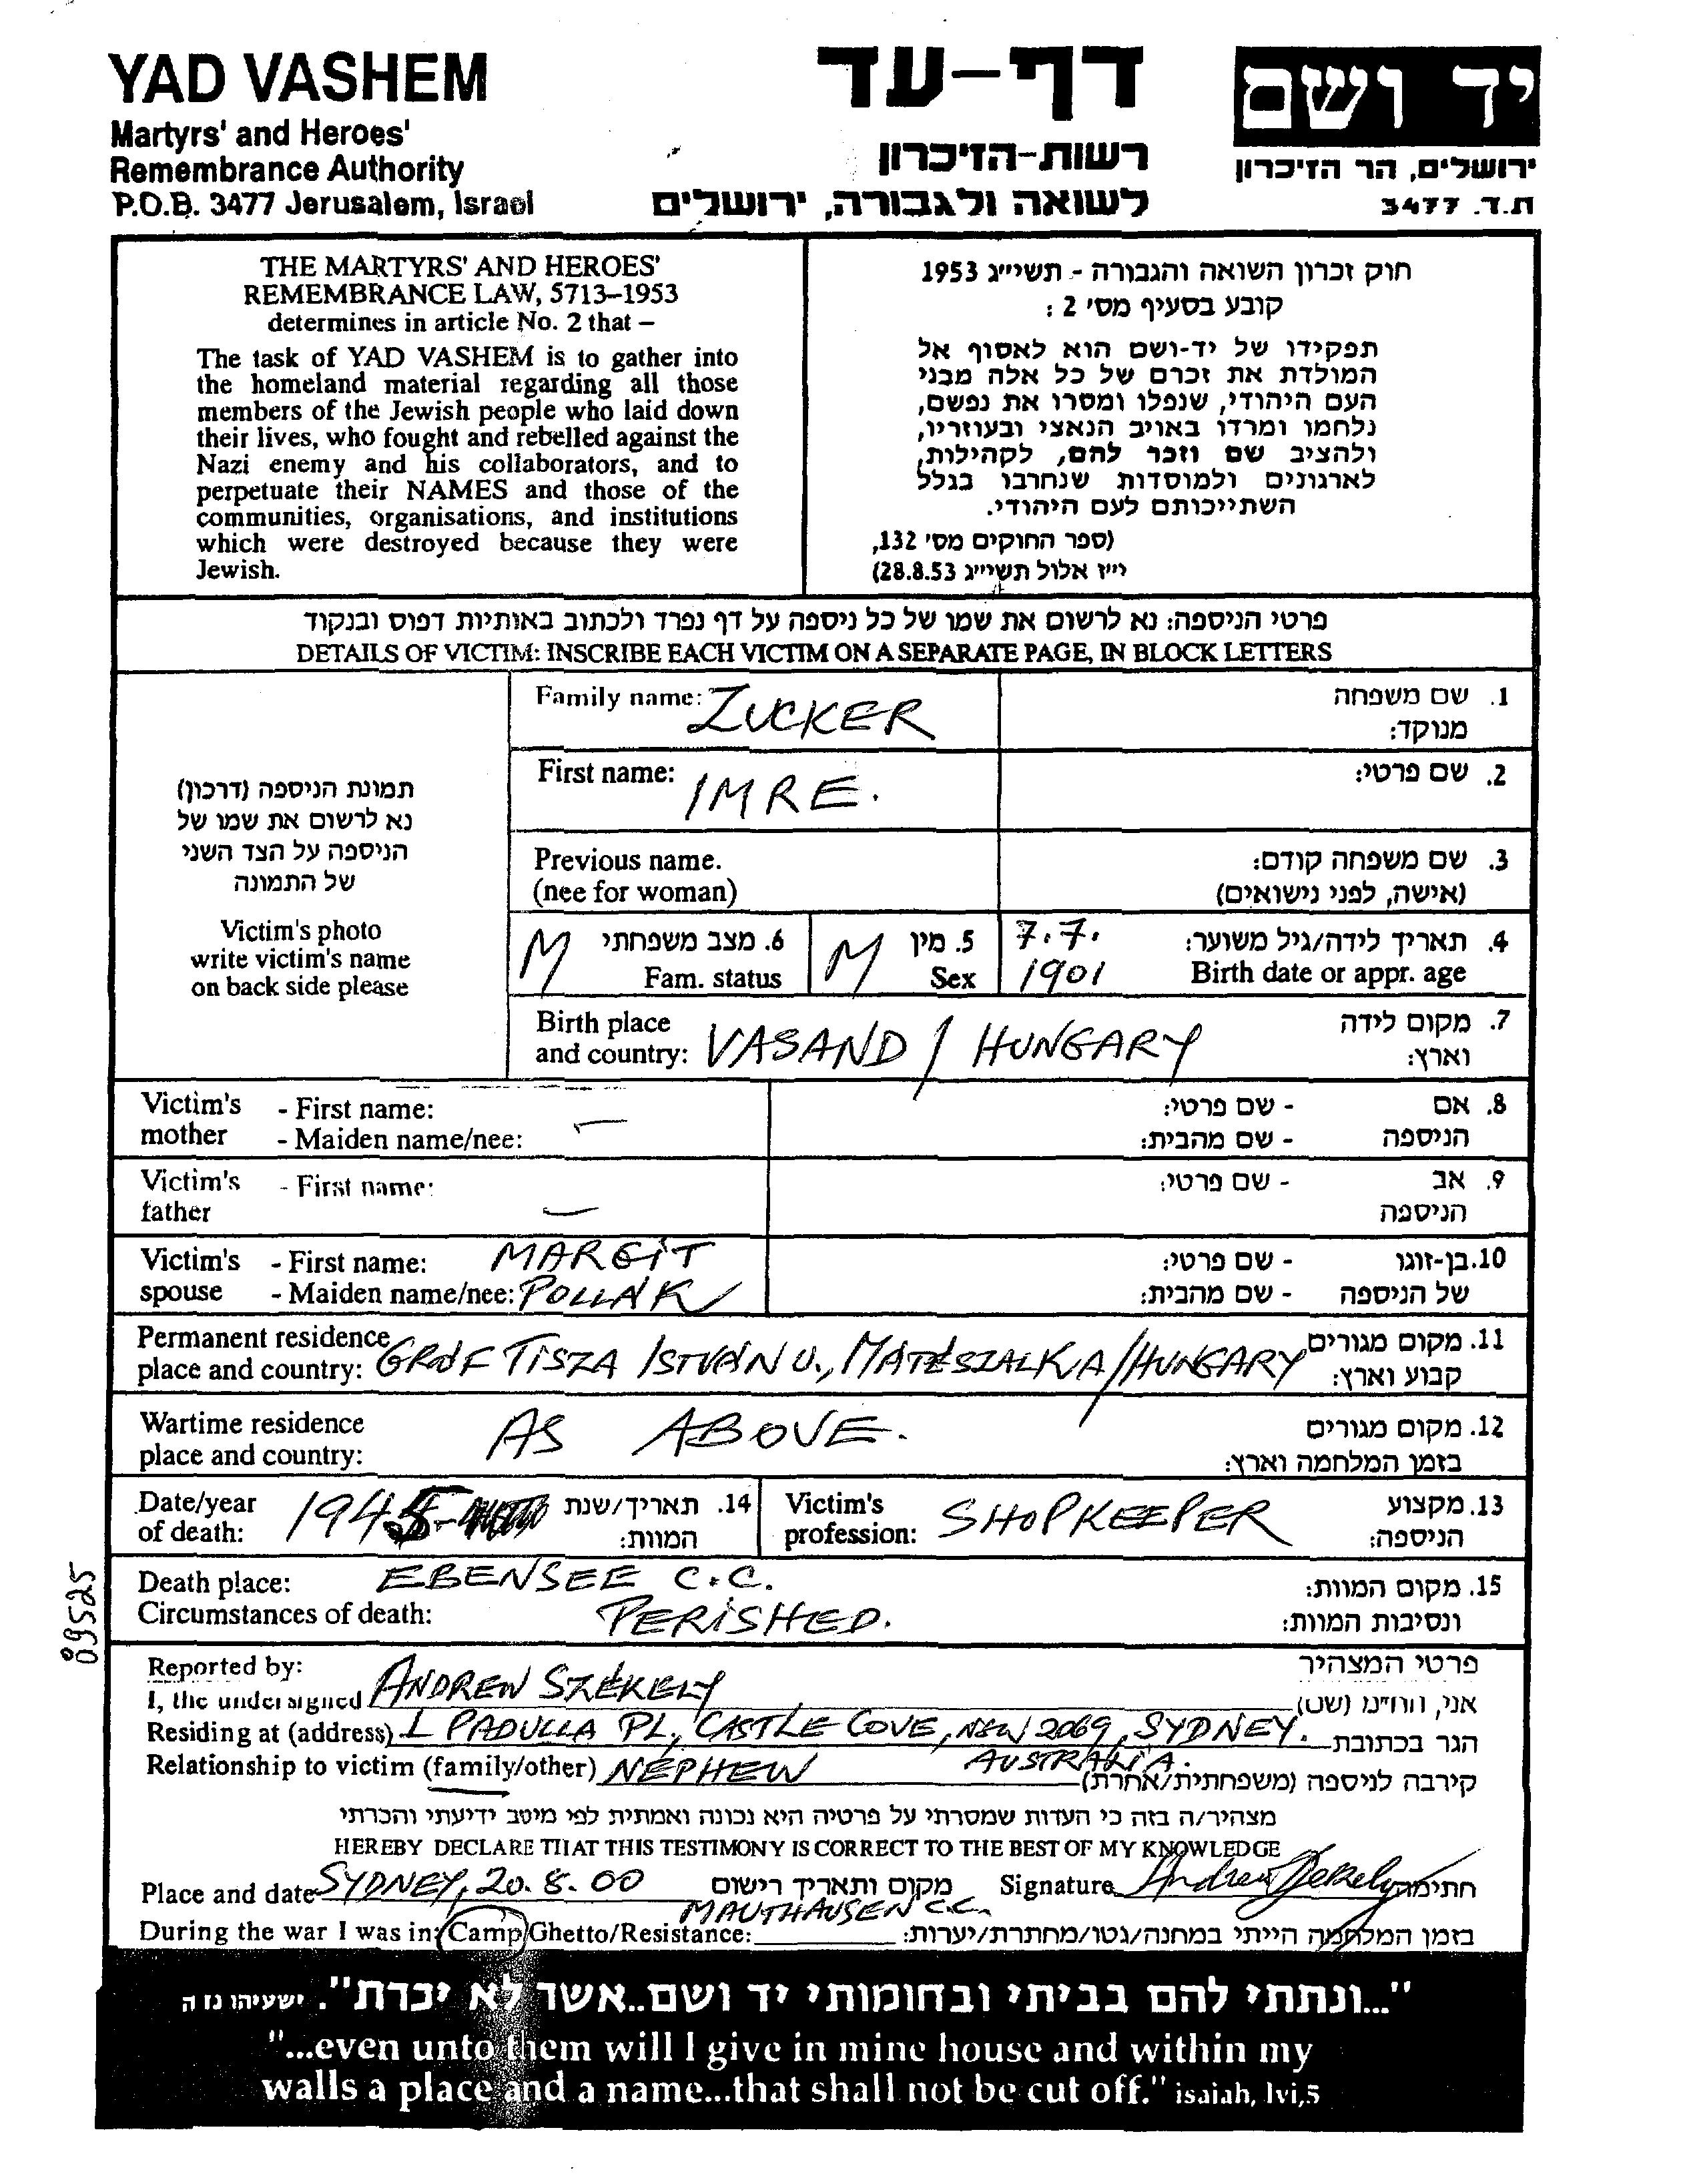 YAD VASHEM
Martyrs' and Heroes'
Remembrance Authority
P.O.B. 3477 Jerusalem, Israel
דף-עד
רשות-הזיכרון
לשואה ולגבורה, ירושלים
יד ושם
ירושלים, הר הזיכרון
ת.ד. 3477
THE MARTYRS' AND HEROES'
REMEMBRANCE LAW, 5713–1953
determines in article No. 2 that –
The task of YAD VASHEM is to gather into
the homeland material regarding all those
members of the Jewish people who laid down
their lives, who fought and rebelled against the
Nazi enemy and his collaborators, and to
perpetuate their NAMES and those of the
communities, organisations, and institutions
which were destroyed because they were
Jewish.
חוק זכרון השואה והגבורה - תשי״ג 1953
קובע בסעיף מס' 2 :
תפקידו של יד-ושם הוא לאסוף אל
המולדת את זכרם של כל אלה מבני
העם היהודי, שנפלו ומסרו את נפשם,
נלחמו ומרדו באויב הנאצי ובעוזריו,
ולהציב שם וזכר להם, לקהילות,
לארגונים ולמוסדות שנחרבו בגלל
השתייכותם לעם היהודי.
(ספר החוקים מס' 132,
י״ז אלול תשי״ג 28.8.53)
פרטי הניספה: נא לרשום את שמו של כל ניספה על דף נפרד ולכתוב באותיות דפוס ובנקוד
DETAILS OF VICTIM: INSCRIBE EACH VICTIM ON A SEPARATE PAGE, IN BLOCK LETTERS
תמונת הניספה (דרכון)
נא לרשום את שמו של
הניספה על הצד השני
של התמונה
Victim's photo
write victim's name
on back side please
Family name: ZUCKER
1. שם משפחה
מנוקד:
First name: IMRE.
2. שם פרטי:
Previous name.
(nee for woman)
3. שם משפחה קודם:
(אישה, לפני נישואים)
M 6. מצב משפחתי
Fam. status
M 5. מין
Sex
7.7.
1901
4. תאריך לידה/גיל משוער:
Birth date or appr. age
Birth place
and country: VASAND / HUNGARY
7. מקום לידה
וארץ:
Victim's mother - First name:
- Maiden name/nee: —
8. אם - שם פרטי:
הניספה - שם מהבית:
Victim's father - First name: —
9. אב - שם פרטי:
הניספה
Victim's spouse - First name: MARGIT
- Maiden name/nee: POLLÁK
10. בן-זוגו - שם פרטי:
של הניספה - שם מהבית:
Permanent residence
place and country: GRÓF TISZA ISTVÁN U., MÁTÉSZALKA/HUNGARY
11. מקום מגורים
קבוע וארץ:
Wartime residence
place and country: AS ABOVE.
12. מקום מגורים
בזמן המלחמה וארץ:
Date/year
of death: 1945
14. תאריך/שנת
המוות:
Victim's
profession: SHOPKEEPER
13. מקצוע
הניספה:
Death place: EBENSEE C.C.
Circumstances of death: PERISHED.
15. מקום המוות:
ונסיבות המוות:
09525
Reported by:
פרטי המצהיר
I, the undersigned ANDREW SZÉKELY
אני, הח״מ (שם)
Residing at (address) 1 PADULLA PL, CASTLE COVE, NSW 2069, SYDNEY.
AUSTRALIA.
הגר בכתובת
Relationship to victim (family/other) NEPHEW
קירבה לניספה (משפחתית/אחרת)
מצהיר/ה בזה כי העדות שמסרתי על פרטיה היא נכונה ואמתית לפי מיטב ידיעתי והכרתי
HEREBY DECLARE THAT THIS TESTIMONY IS CORRECT TO THE BEST OF MY KNOWLEDGE
Place and date SYDNEY, 20.8.00 מקום ותאריך רישום
Signature Andrew Szekely חתימה
During the war I was in: Camp/Ghetto/Resistance: MAUTHAUSEN C.C.
בזמן המלחמה הייתי במחנה/גטו/מחתרת/יערות:
"...ונתתי להם בביתי ובחומותי יד ושם..אשר לא יכרת". ישעיהו נו ה
"...even unto them will I give in mine house and within my
walls a place and a name...that shall not be cut off." isaiah, lvi,5